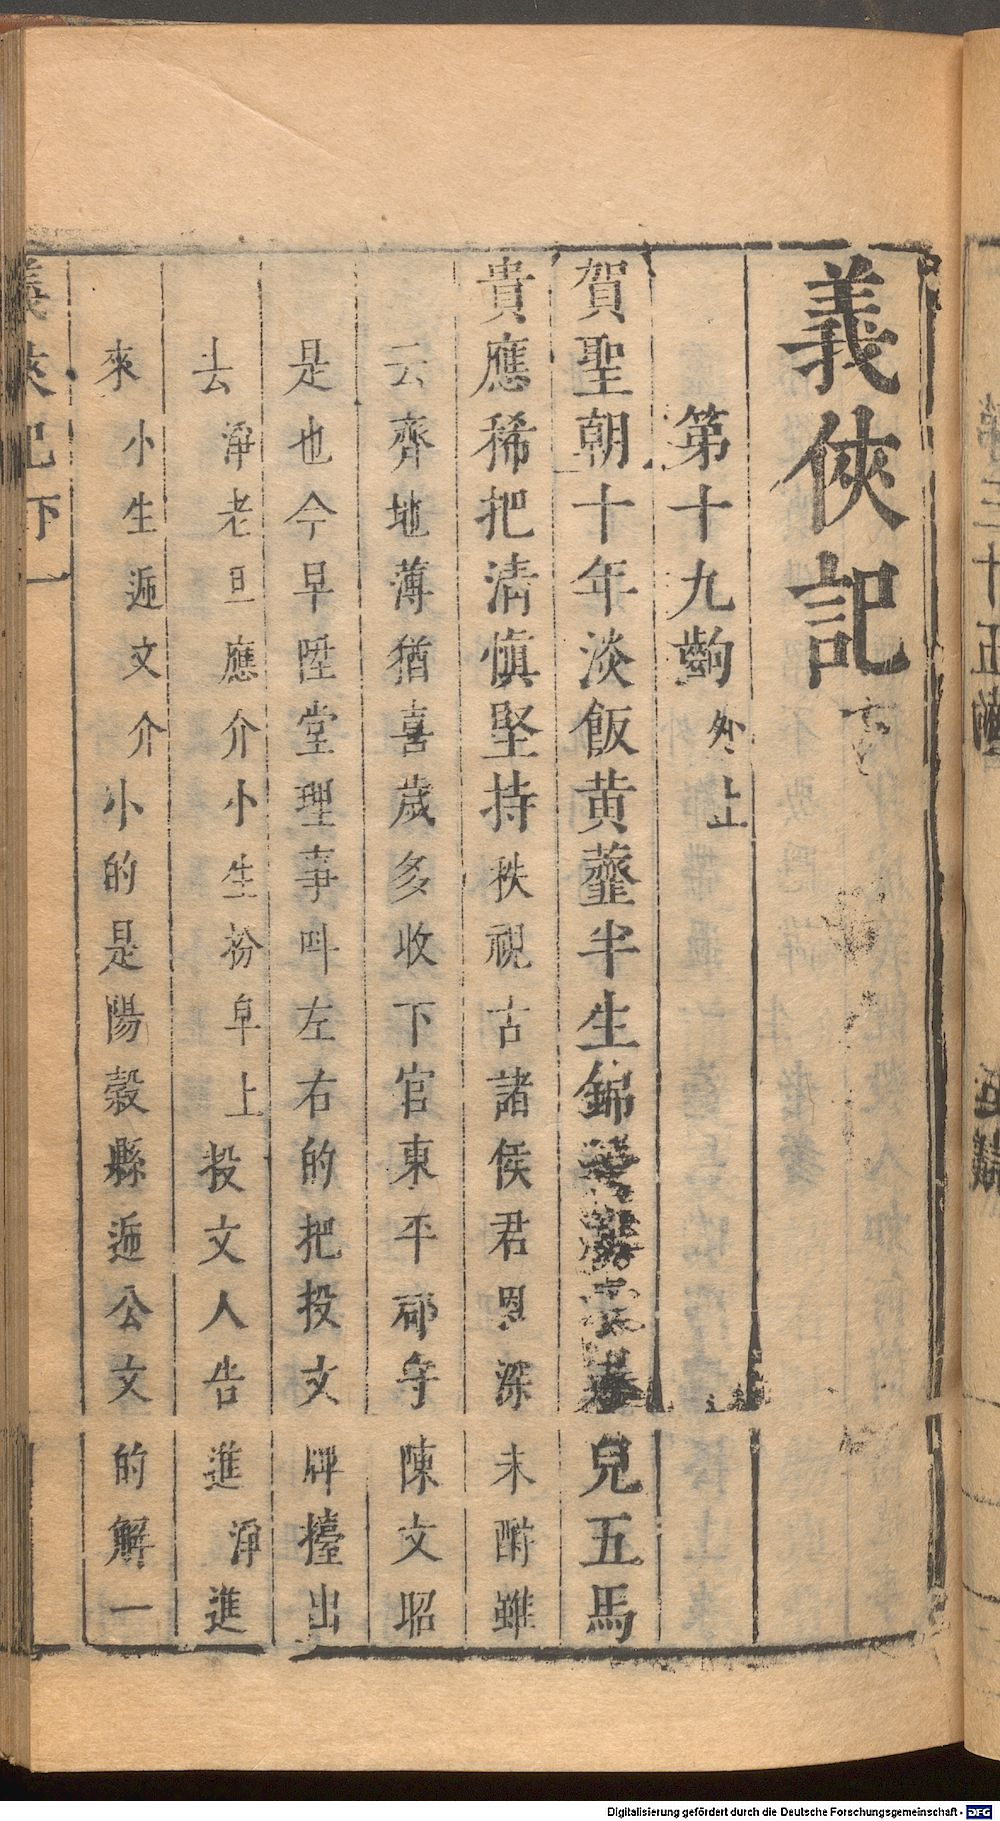 義俠記
第十九齣 外上
賀聖朝十年淡飯黄虀半生錦 兒五馬
貴應稀把清慎堅持秩視古諸侯君恩深未酧雖
云齊地薄猶喜歲多收下官東平郡守陳文昭
是也今早陞堂理事呌左右的把投文牌擡出
去 淨老旦應介小生扮皁上 投文人告進 淨 進
來 小生遞文介 小的是陽穀縣遞公文的解一
義俠記下 一
第三十五齣
Digitalisierung gefördert durch die Deutsche Forschungsgemeinschaft - DFG